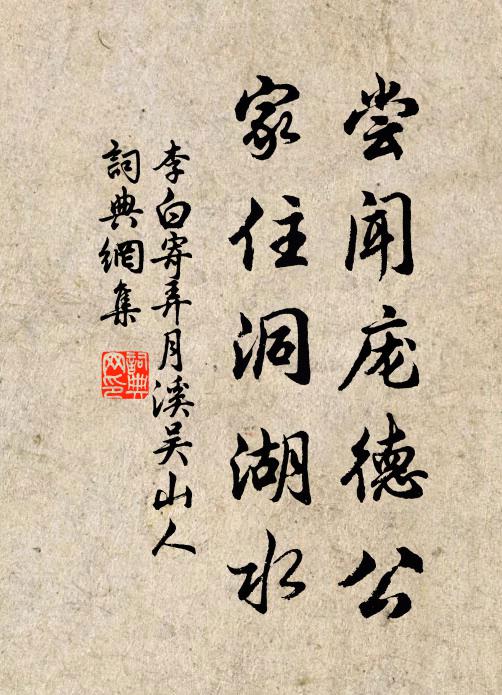 尝闻庞德公
家住洞湖水
李白寄弄月溪吴山人
詞典網集
詞典
网印